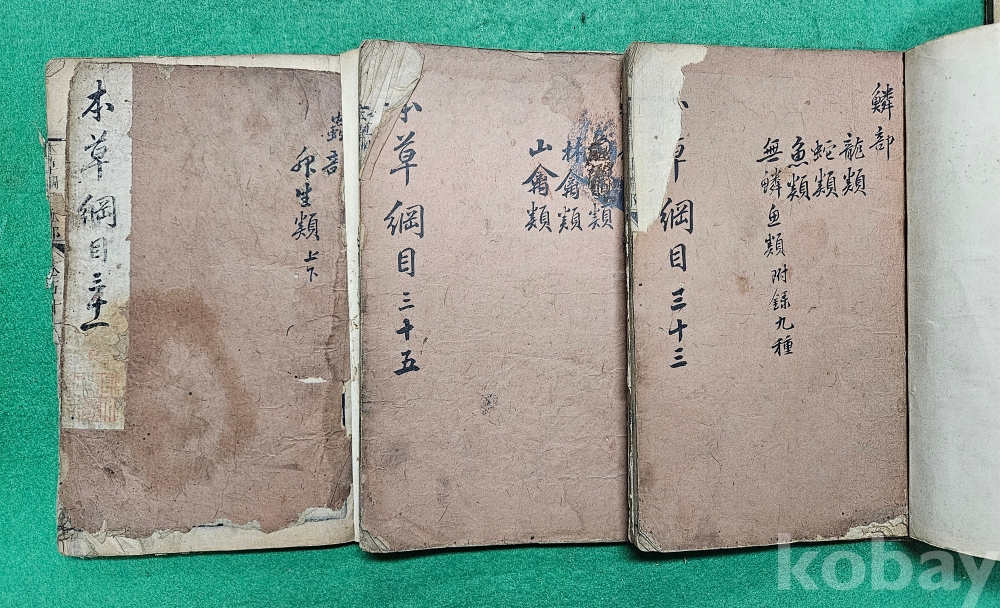 本草綱目三十一
蟲部
卵生類上下
草綱目三十五
類
林禽類
山禽類
草綱目三十三
鱗部
龍類
蛇類
魚類
無鱗魚類附録九種
kobay